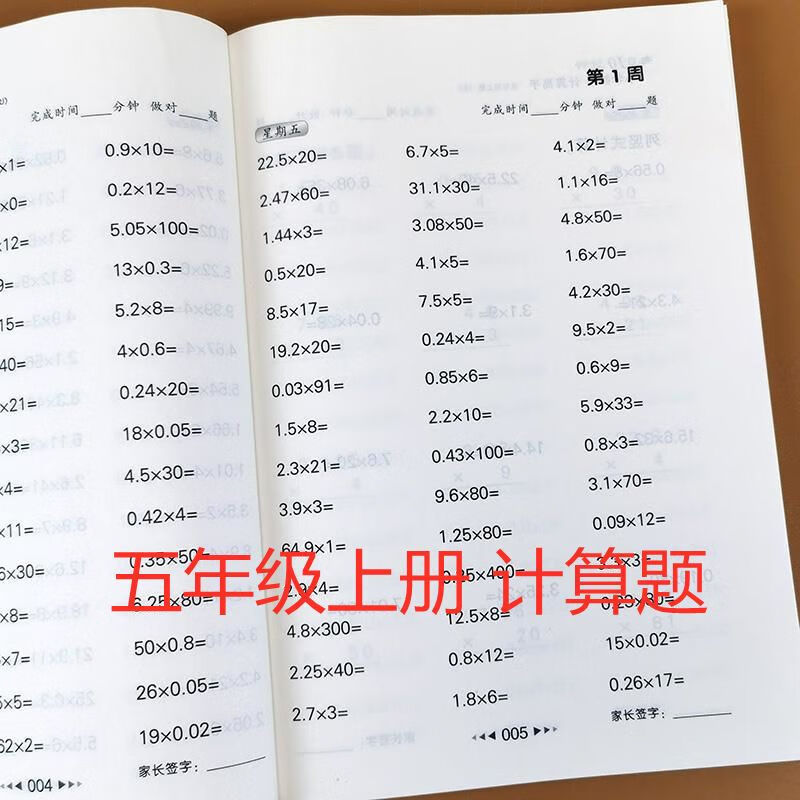 完成时间____分钟 做对____题
×1= 0.9×10=
×0= 0.2×12=
×12= 5.05×100=
9= 13×0.3=
15= 5.2×8=
40= 4×0.6=
×21= 0.24×20=
×3= 18×0.05=
×4= 4.5×30=
×11= 0.42×4=
×30= 0.35×50=
6.25×80=
×7= 50×0.8=
×5= 26×0.05=
62×2= 19×0.02=
家长签字:________
004
第1周
完成时间____分钟 做对____题
星期五
22.5×20= 6.7×5= 4.1×2=
2.47×60= 31.1×30= 1.1×16=
1.44×3= 3.08×50= 4.8×50=
0.5×20= 4.1×5= 1.6×70=
8.5×17= 7.5×5= 4.2×30=
19.2×20= 0.24×4= 9.5×2=
0.03×91= 0.85×6= 0.6×9=
1.5×8= 2.2×10= 5.9×33=
2.3×21= 0.43×100= 0.8×3=
3.9×3= 9.6×80= 3.1×70=
64.9×1= 1.25×80= 0.09×12=
2.9×4= 3.3×3=
4.8×300= 12.5×8=
2.25×40= 0.8×12= 15×0.02=
2.7×3= 1.8×6= 0.26×17=
家长签字:________
005
五年级上册 计算题